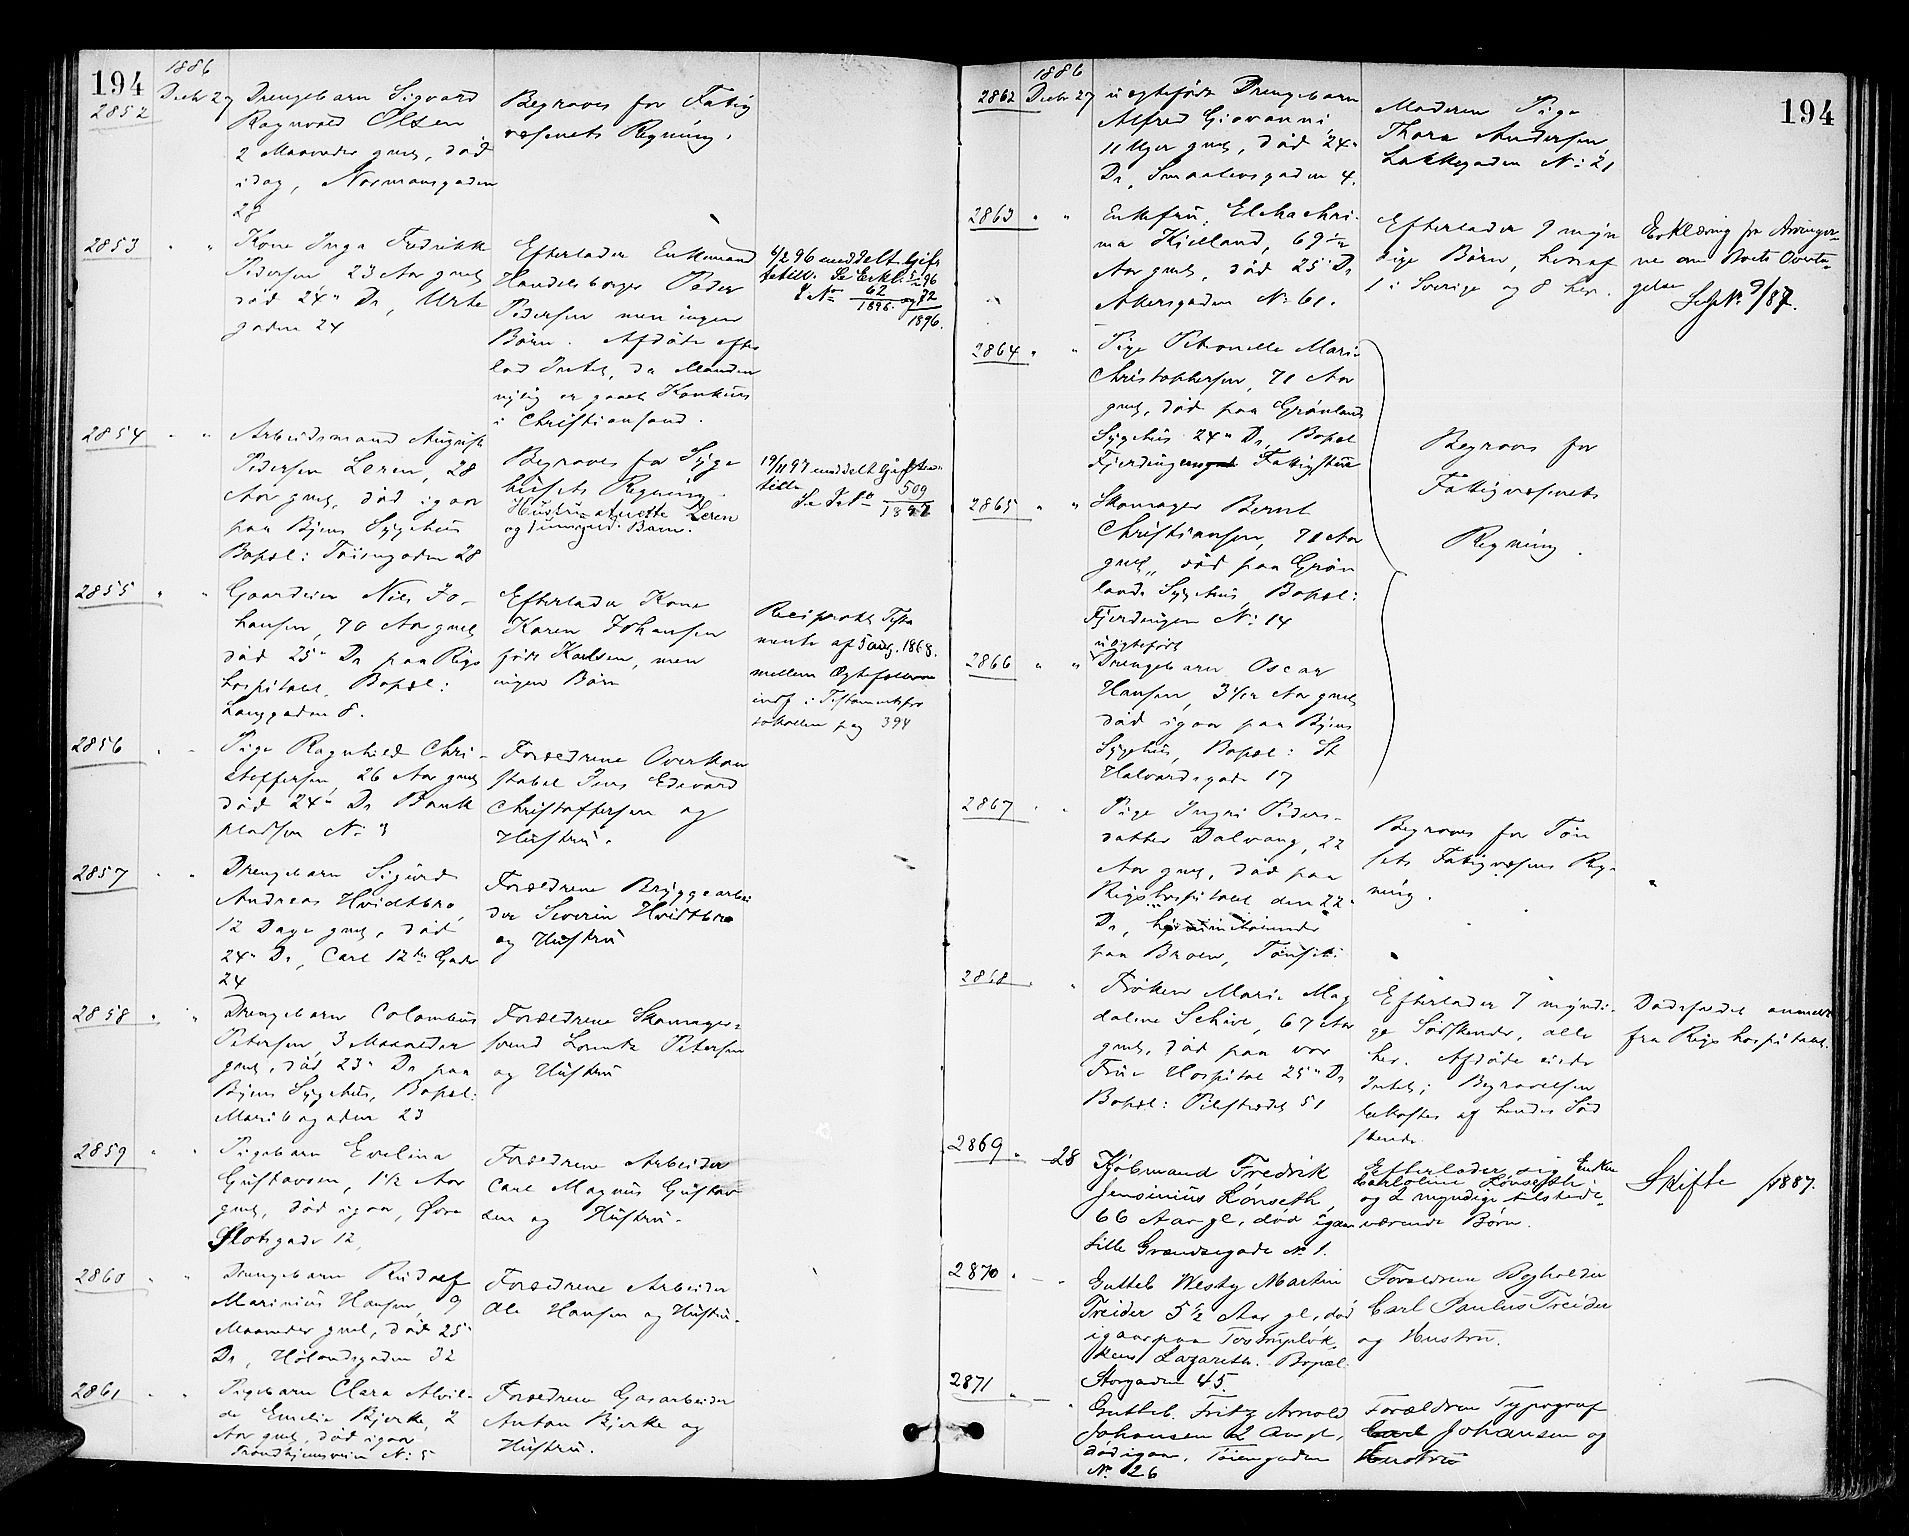 194
1886
2852 Decbr 27 Drengebarn Sigvard
Ragnvald Olsen
2 Maaneder gml, død
idag, Normansgaden
28
Begraves for Fattig
væsenets Regning.
2853 " " Kone Inga Fredrikke
Pedersen 23 Aar gml
død 24de Ds, Urte
gaden 24
Efterlader Enkemand
Handelsborger Peder
Pedersen men ingen
Børn. Afdøde efter
lod Intet, da Manden
nylig er gaaet Konkurs
i Christiansand.
6/2 96 meddelt Gifte
62
1896
72
1896.
2854 " " Arbeidsmand August
Pedersen Leren, 28
Aar gml, død igaar
paa Byens Sygehus
Bopæl: Tøiengaden 28
Begraves for Syge
husets Regning.
Hustru Anette Leren
og 1 umynd. Barn.
19/11 97 meddelt Gifte
509
1897
2855 " " Gaardeier Nils Jo-
hansen, 70 Aar gml
død 25de Ds paa Rigs
hospitalet. Bopæl:
Langgaden 8.
Efterlader Kone
Karen Johansen
født Karlsen, men
ingen Børn
Reciprokt Testa
mente af 5 aug. 1868.
mellem Ægtefællerne
indf i Testamentspro
tokollen pag 394
2856 " " Pige Ragnhild Chri-
stoffersen, 26 Aar gml
død 24de Ds Bank
pladsen No 3
Forældrene Overkon
stabel Jens Edevard
Christoffersen og
Hustru.
2857 " " Drengebarn Sigurd
Andreas Hvidtbro,
12 Dage gml, død
24de Ds, Carl 12tes Gade
24
Forældrene Bryggearbei
der Severin Hvidtbro
og Hustru
2858 " " Drengebarn Colombus
Petersen, 3 Maaneder
gml, død 23de Ds paa
Byens Sygehus, Bopæl:
Maribogaden 23
Forældrene Skomager-
svend Lorentz Petersen
og Hustru
2859 " " Pigebarn Evelina
Gustavsen, 1 1/2 Aar
gml, død igaar, Øvre
Slotsgade 12,
Forældrene Arbeider
Carl Magnus Gustav
sen og Hustru.
2860 " " Drengebarn Rudolf
Marinius Hansen, 9
Maaneder gml, død 25de
Ds, Hølandsgaden 32
Forældrene Arbeider
Ole Hansen og Hustru.
2861 " " Pigebarn Clara Alvil-
de Emelie Bjerke, 2
Aar gml, død igaar
Trondhjemsveien No 5
Forældrene Gasarbeider
Anton Bjerke og
Hustru.
194
1886
2862 Decbr 27 uægtefødt Drengebarn
Alfred Giovanni,
11 Uger gml, død 24de
Ds, Smaalensgaden 4.
Moderen Pige
Thora Andersen,
Lakkegaden No 21
2863 " " Enkefru
Kielland, 69
Aar gml, død 25 Ds
Akersgaden No 61.
Efterlader 9 myn
dige Børn, heraf
1 i Sverige og 8 her.
Erklæring fra Arvinger-
ne om Boets Overta-
gelse
9/87.
2864 " " Pige Petronelle Marie
Christophersen, 71 Aar
gml, død paa Grønlands
Sygehus 24de Ds, Bopæl
Fjerdingen
Begraves for
Fattigvæsenets
Regning.
2865 " " Skomager Bernt
Christiansen, 70 Aar
gml, død paa Grøn
lands Sygehus, Bopæl:
Fjerdingen No 14
2866 " " uægtefødt
Drengebarn Oscar
Hansen, 3 Aar gml
død igaar paa Byens
Sygehus, Bopæl: St
Halvardsgade 17
2867 " " Pige Ingri Peders-
datter Dalvang, 22
Aar gml, død paa
Rigshospitalet den 22de
Ds, hjemmehørende
paa Broen, Tønset.
Begraves for Tøn
sets Fattigvæsens Reg-
ning.
2868 " " Frøken Marie Mag
dalene Schive, 67 Aar
gml, død paa vor
Frue Hospital 25de Ds
Bopæl: Pilestrædet 51
Efterlader 7 myndi-
ge Sødskende, alle
her. Afdøde eiede
Intet; Begravelsen
bekostes af hendes Sød
skende.
Dødsfaldet anmeldt
fra Rigshospitalet.
2869 " 28 Kjøbmand Fredrik
Jensinius Lønseth,
66 Aar gl, død igaar
Lille Grændsegade No 1.
Efterlader sig Enken
Karoline Lønseth
og 2 myndige tilstede-
værende Børn.
Skifte /1887.
2870 " " Gutteb. Westy Martin
Treider 5 1/2 Aar gl, død
igaar paa Tostrupløk
kens Lazareth. Bopæl
Storgaden 45.
Forældrene Bogholder
Carl Paulus Treider
og Hustru.
2871 " " Gutteb. Fritz Arnold
Johansen 2 Aar gl,
død igaar. Tøiengaden
No 26
Forældrene Typograf
Carl Johansen og
Hustru